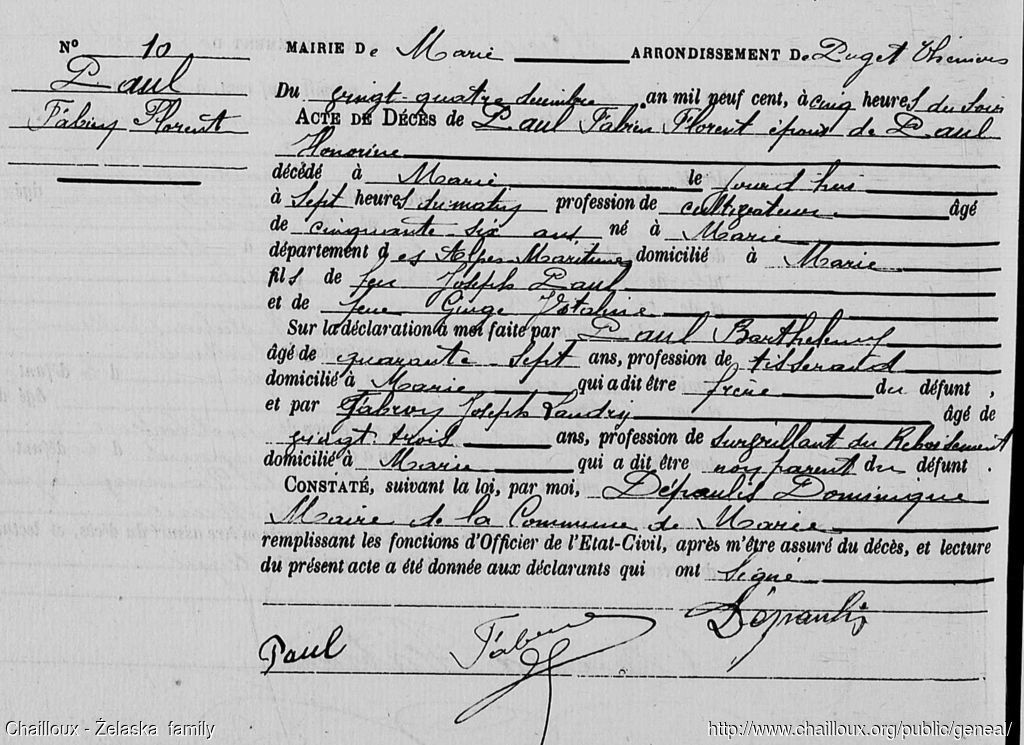 N° 10
Paul
Fabien Florent
MAIRIE De Marie ARRONDISSEMENT De Puget Théniers
Du vingt-quatre décembre an mil neuf cent, à cinq heures du soir
ACTE DE DÉCÈS de Paul Fabien Florent époux de Paul
Honorine
décédé à Marie le jourd'hui
à sept heures du matin profession de cultivateur âgé
de cinquante-six ans né à Marie
département des Alpes Maritimes domicilié à Marie
fils de feu Joseph Paul
et de feue Ginge
Sur la déclaration à moi faite par Paul Barthelemy
âgé de quarante-sept ans, profession de tisserand
domicilié à Marie qui a dit être frère du défunt ,
et par Joseph Landry âgé de
vingt trois ans, profession de surveillant du Reboisement
domicilié à Marie qui a dit être non parent du défunt .
CONSTATÉ, suivant la loi, par moi, Dépaulis Dominique
Maire de la Commune de Marie
remplissant les fonctions d'Officier de l'Etat-Civil, après m'être assuré du décès, et lecture
du présent acte a été donnée aux déclarants qui ont signé
Dépaulis
Paul
Chailloux - Želaska family
http://www.chailloux.org/public/geneal/